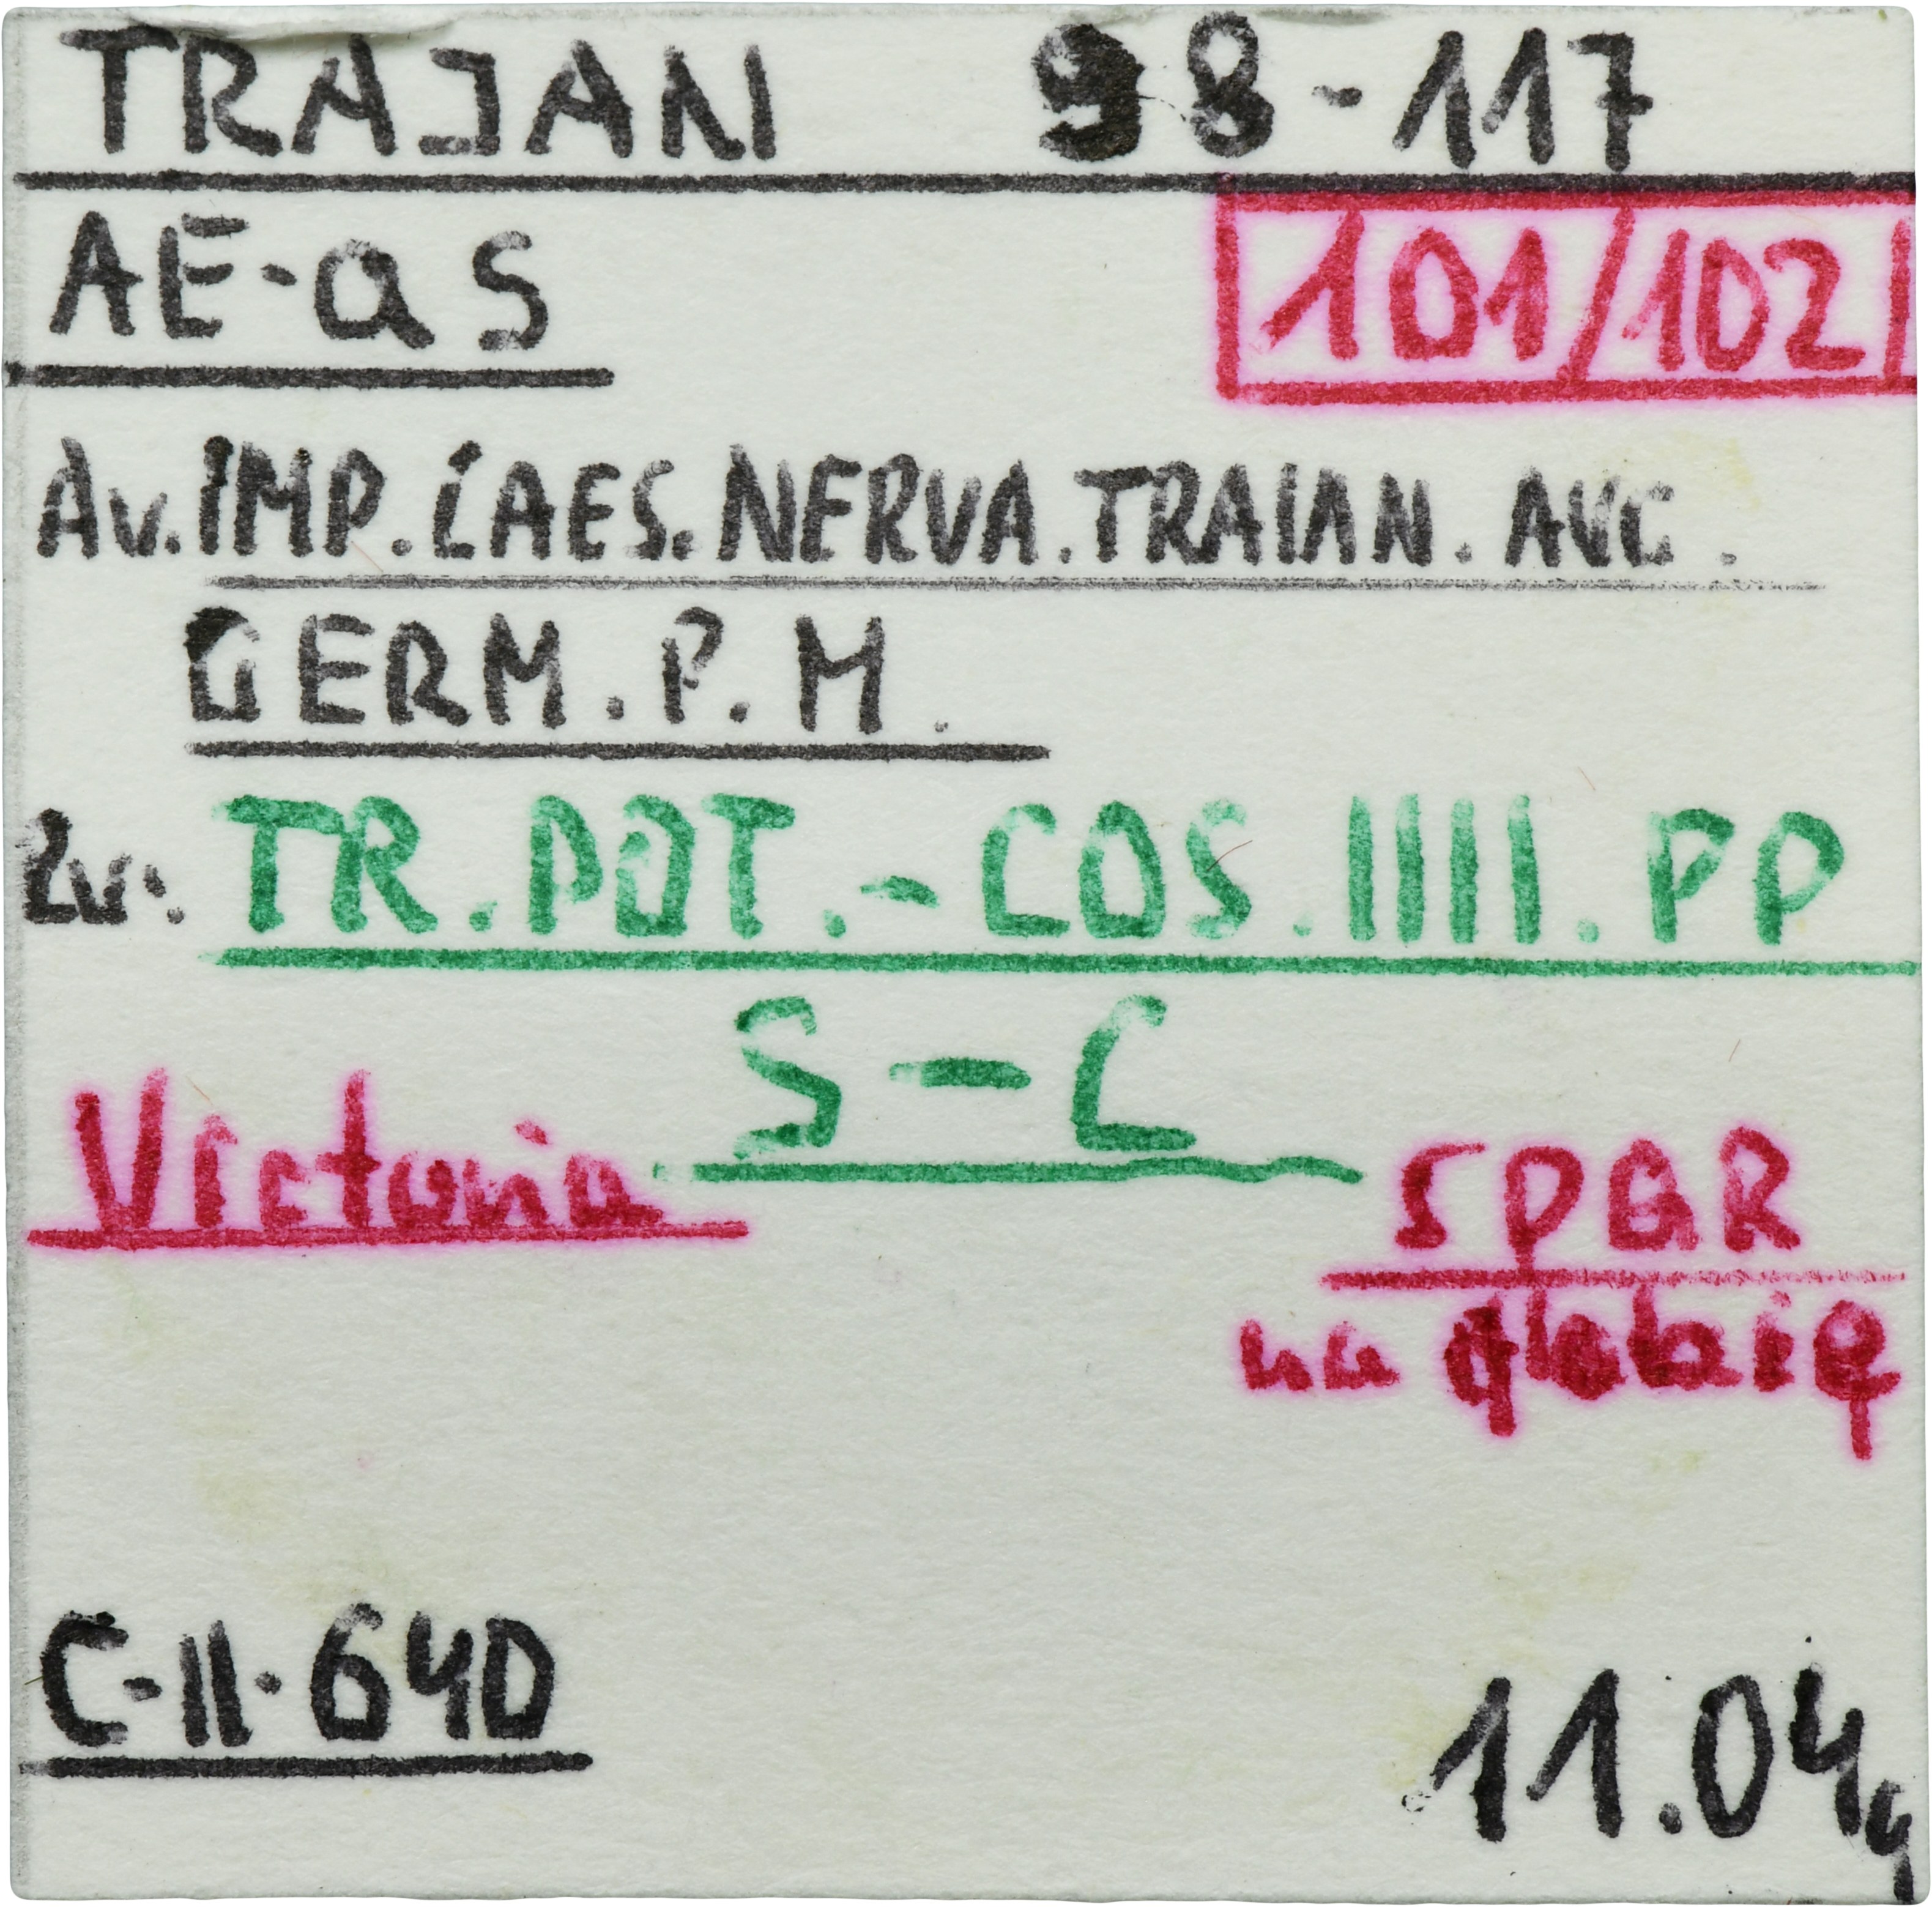 TRAJAN 98-117
AE-as 101/102
Av. IMP. CAES. NERVA. TRAIAN. AVG.
GERM. P. M.
Rv: TR. POT. - COS. IIII. PP
S - C
Victoria SPQR
na globie
C-II-640 11.04g